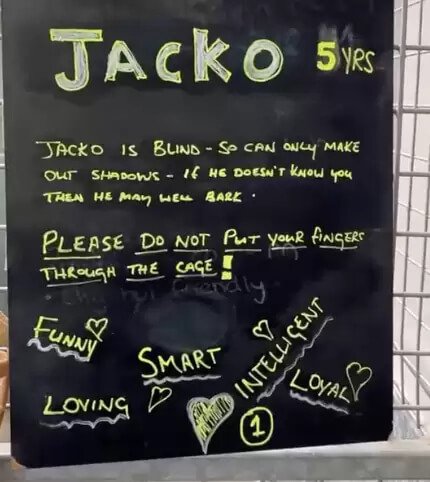 JACKO 5 YRS
JACKO IS BLIND - SO CAN ONLY MAKE
OUT SHADOWS - IF HE DOESN'T KNOW YOU
THEN HE MAY WELL BARK.
PLEASE DO NOT PUT YOUR FINGERS
THROUGH THE CAGE!
friendly
FUNNY
SMART
INTELLIGENT
LOVING
LOYAL
1